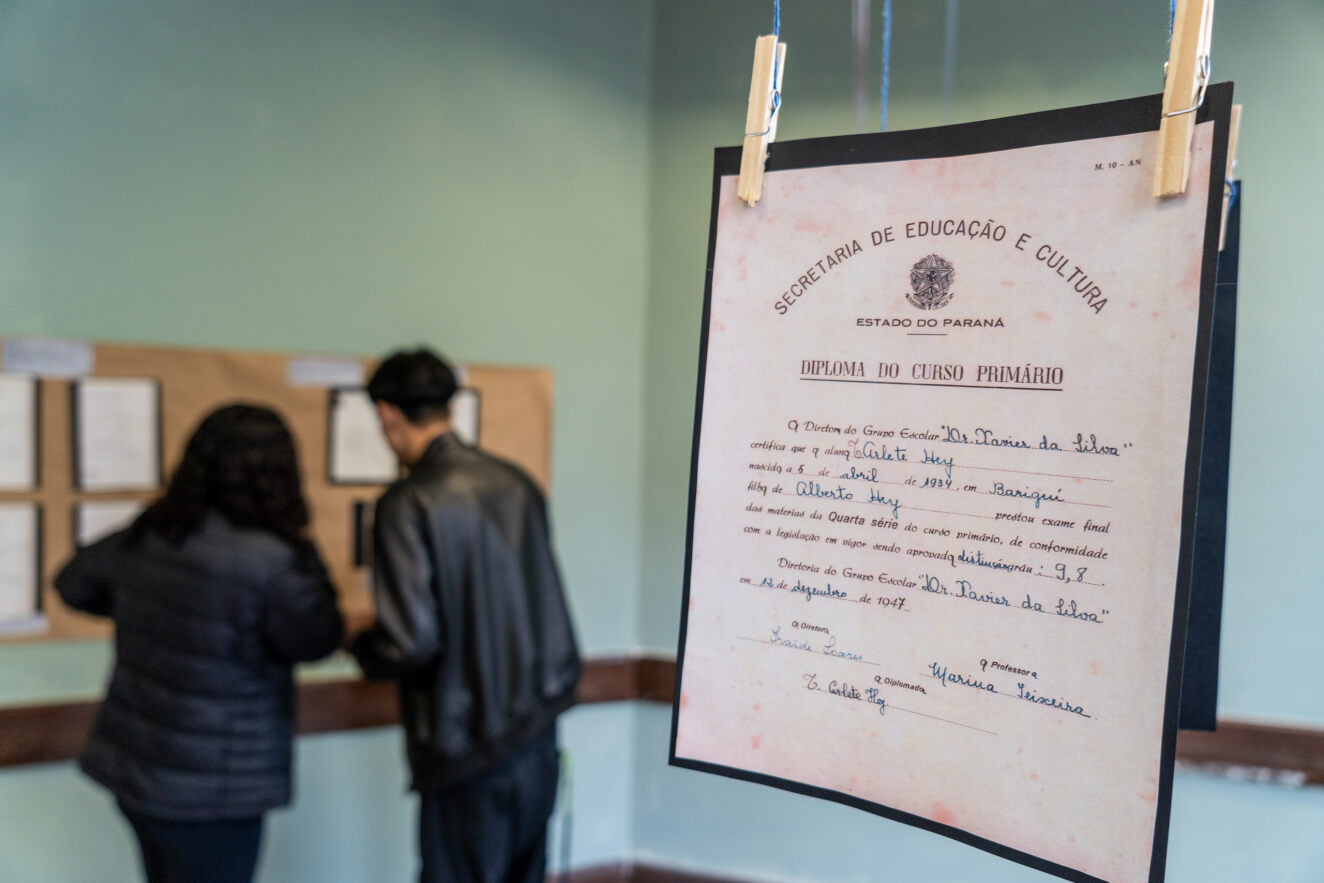 M. 10 - AN
SECRETARIA DE EDUCAÇÃO E CULTURA
ESTADO DO PARANÁ
DIPLOMA DO CURSO PRIMÁRIO
O Diretor do Grupo Escolar "Dr. Xavier da Silva"
certifica que a aluna T. Arlete Hey
nascida a 5 de abril de 1934, em Barigui
filha de Alberto Hey prestou exame final
das materias da Quarta série do curso primário, de conformidade
com a legislação em vigor sendo aprovada distinção gráu: 9,8
Diretoria do Grupo Escolar "Dr. Xavier da Silva"
em 12 de dezembro de 1947
A Diretora
A Professora
Soares
Marina Teixeira
A Diplomada
T. Arlete Hey